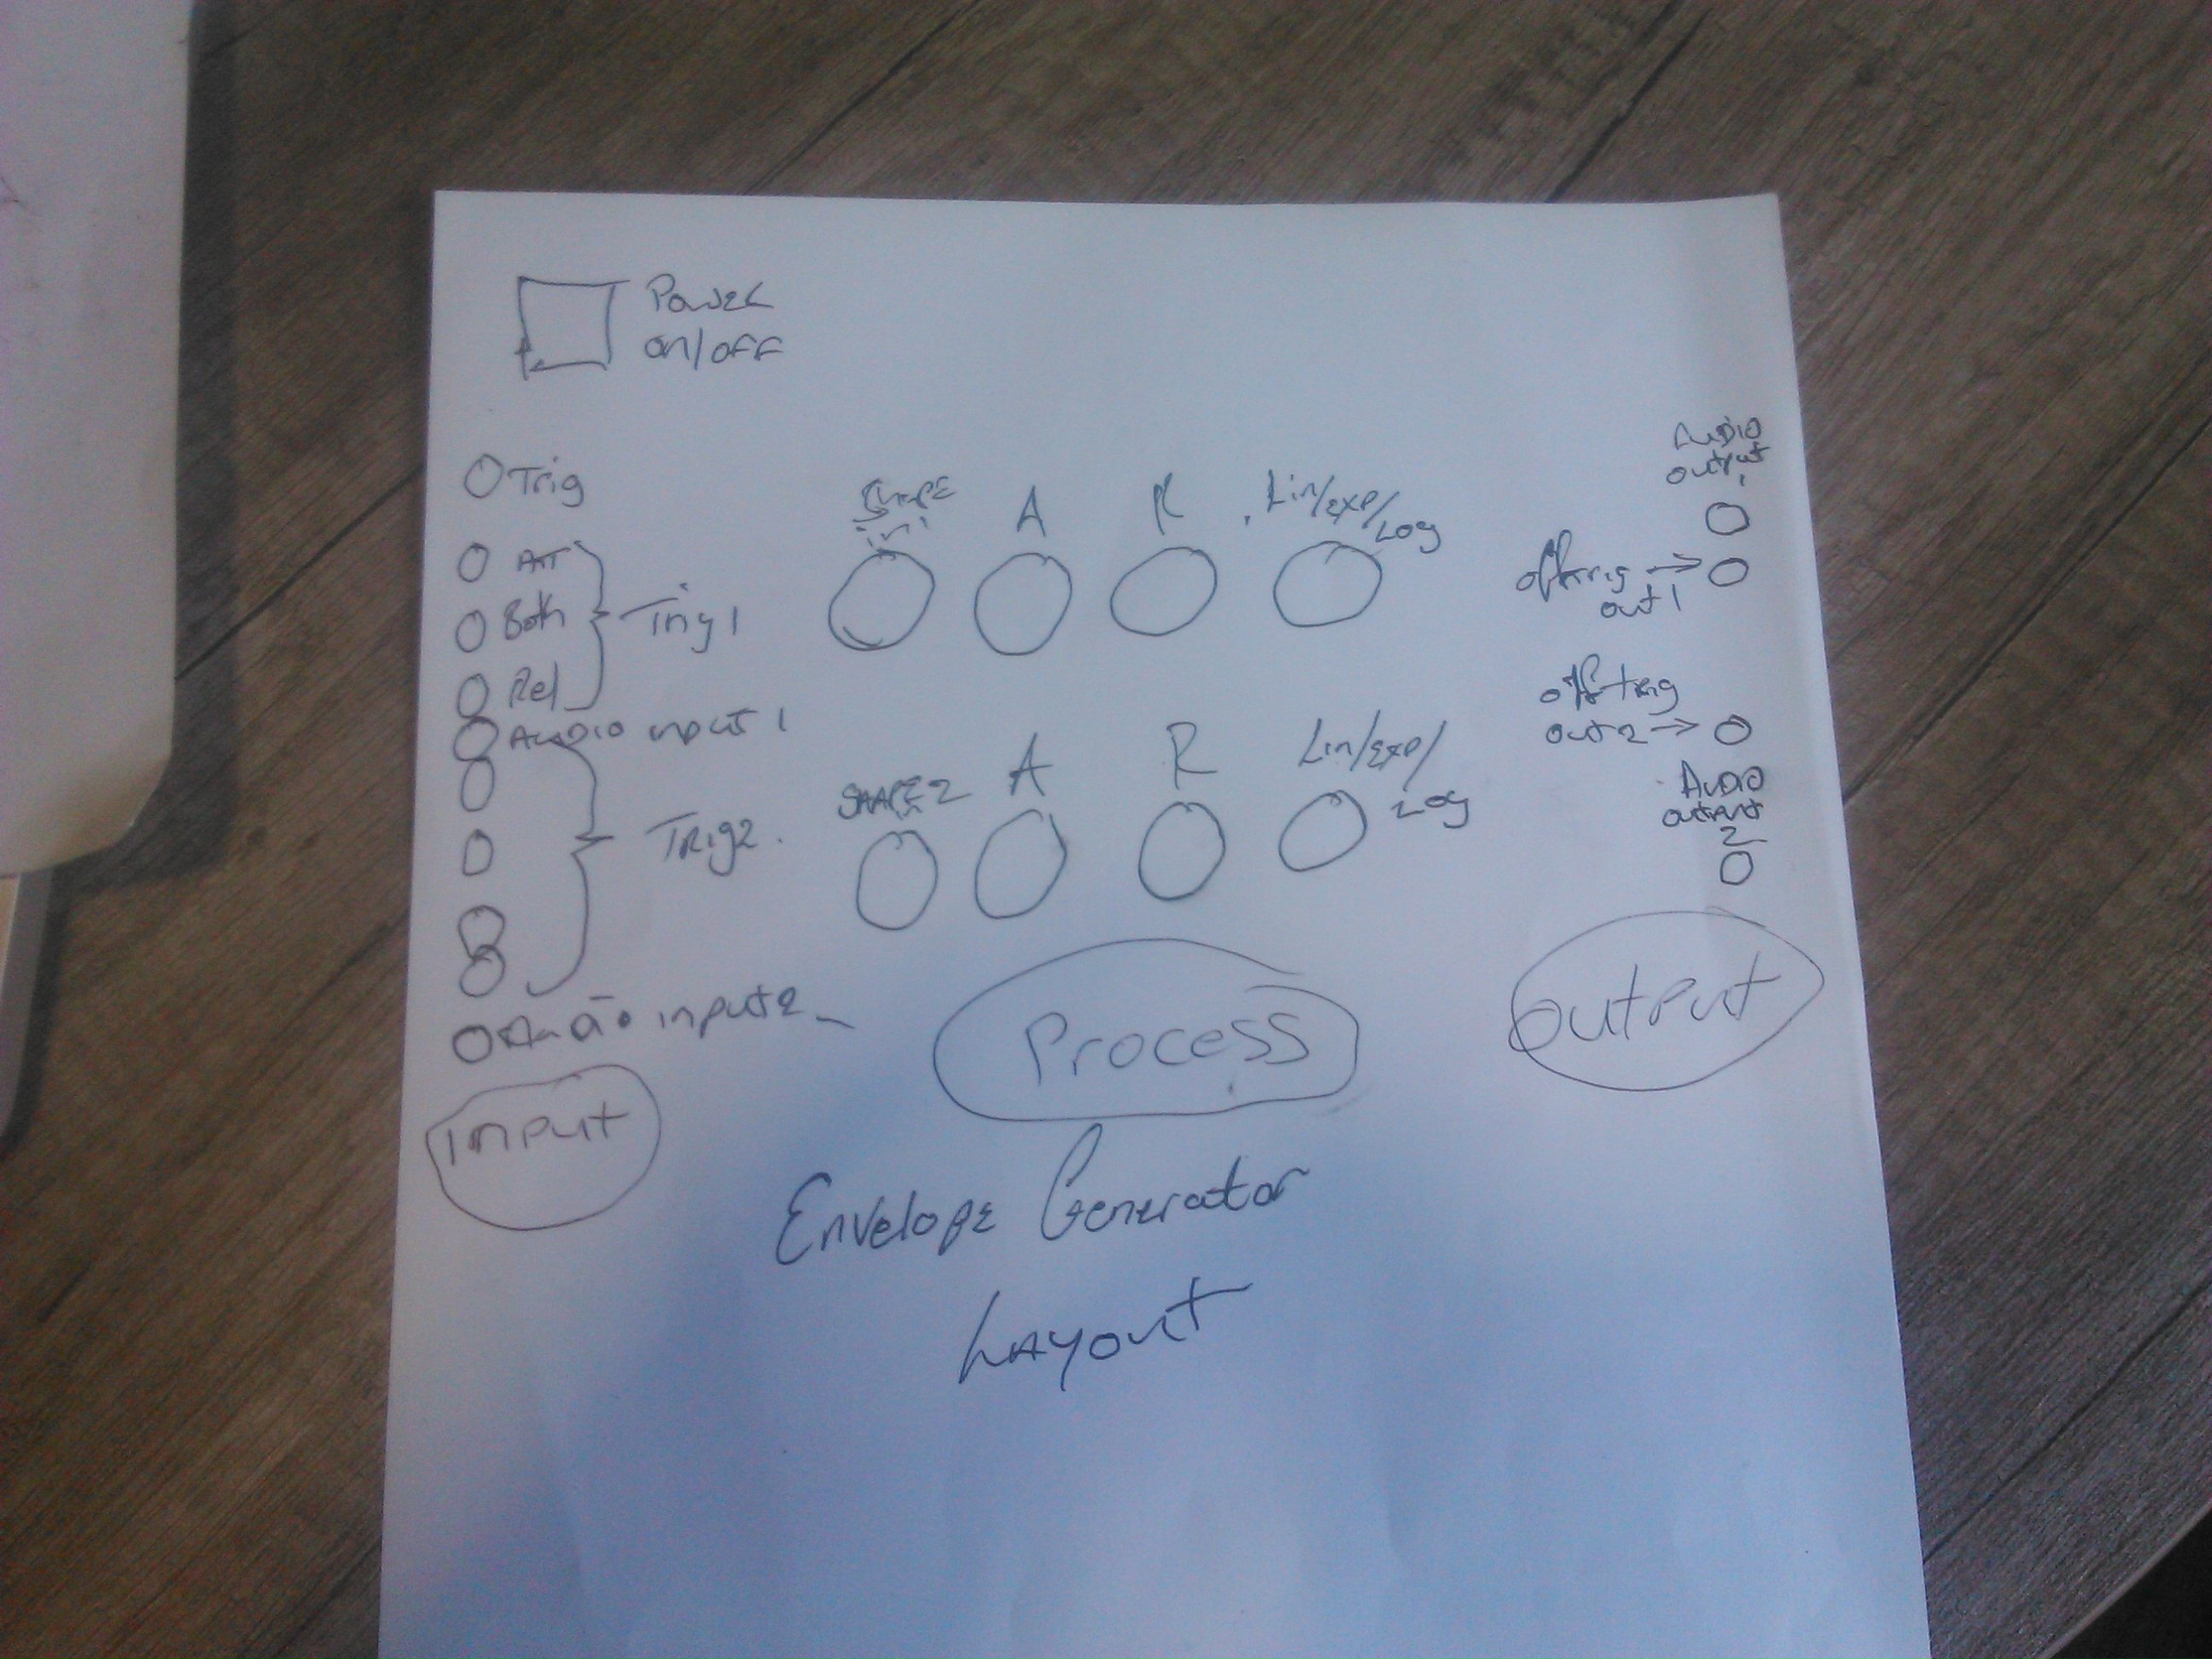 Power
on/off
Trig
Att
Both
Rel
Trig 1
Audio input 1
Trig 2
Audio input 2
Input
Shape
A
R
Lin/Exp/
Log
SHAPE 2
A
R
Lin/Exp/
Log
Process
Audio
output
1
off trig →
out 1
off trig
out 2 →
Audio
output
2
Output
Envelope Generator
Layout